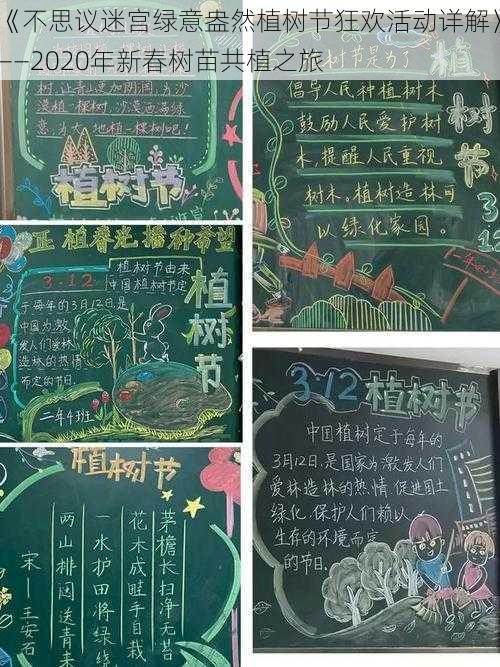 《不思议迷宫绿意盎然植树节狂欢活动详解》
——2020年新春树苗共植之旅
树,让青山更加阴润,为沙
漠植一棵树,沙漠洒满绿
意,为大地植一棵树吧!
植树节
节是为了
倡导人民种植树木
鼓励人民爱护树
木,提醒人民重视
树木。植树造林可
以绿化家园。
植树节
3.12
正植春光 播种希望
3.12
植树节由来
中国植树节定
于每年的3月12日是
中国为激
发人们爱林
造林的热情
而定的节日.
二年4班
植树节
植树节
茅檐长扫净无苔
花木成畦手自栽
一水护田将绿绕
两山排闼送青来
宋—王安石
3.12植树节
中国植树定于每年的
3月12日.是国家为激发人们
爱林造林的热情 促进国土
绿化.保护人们赖以
生存的环境而定
的节日.